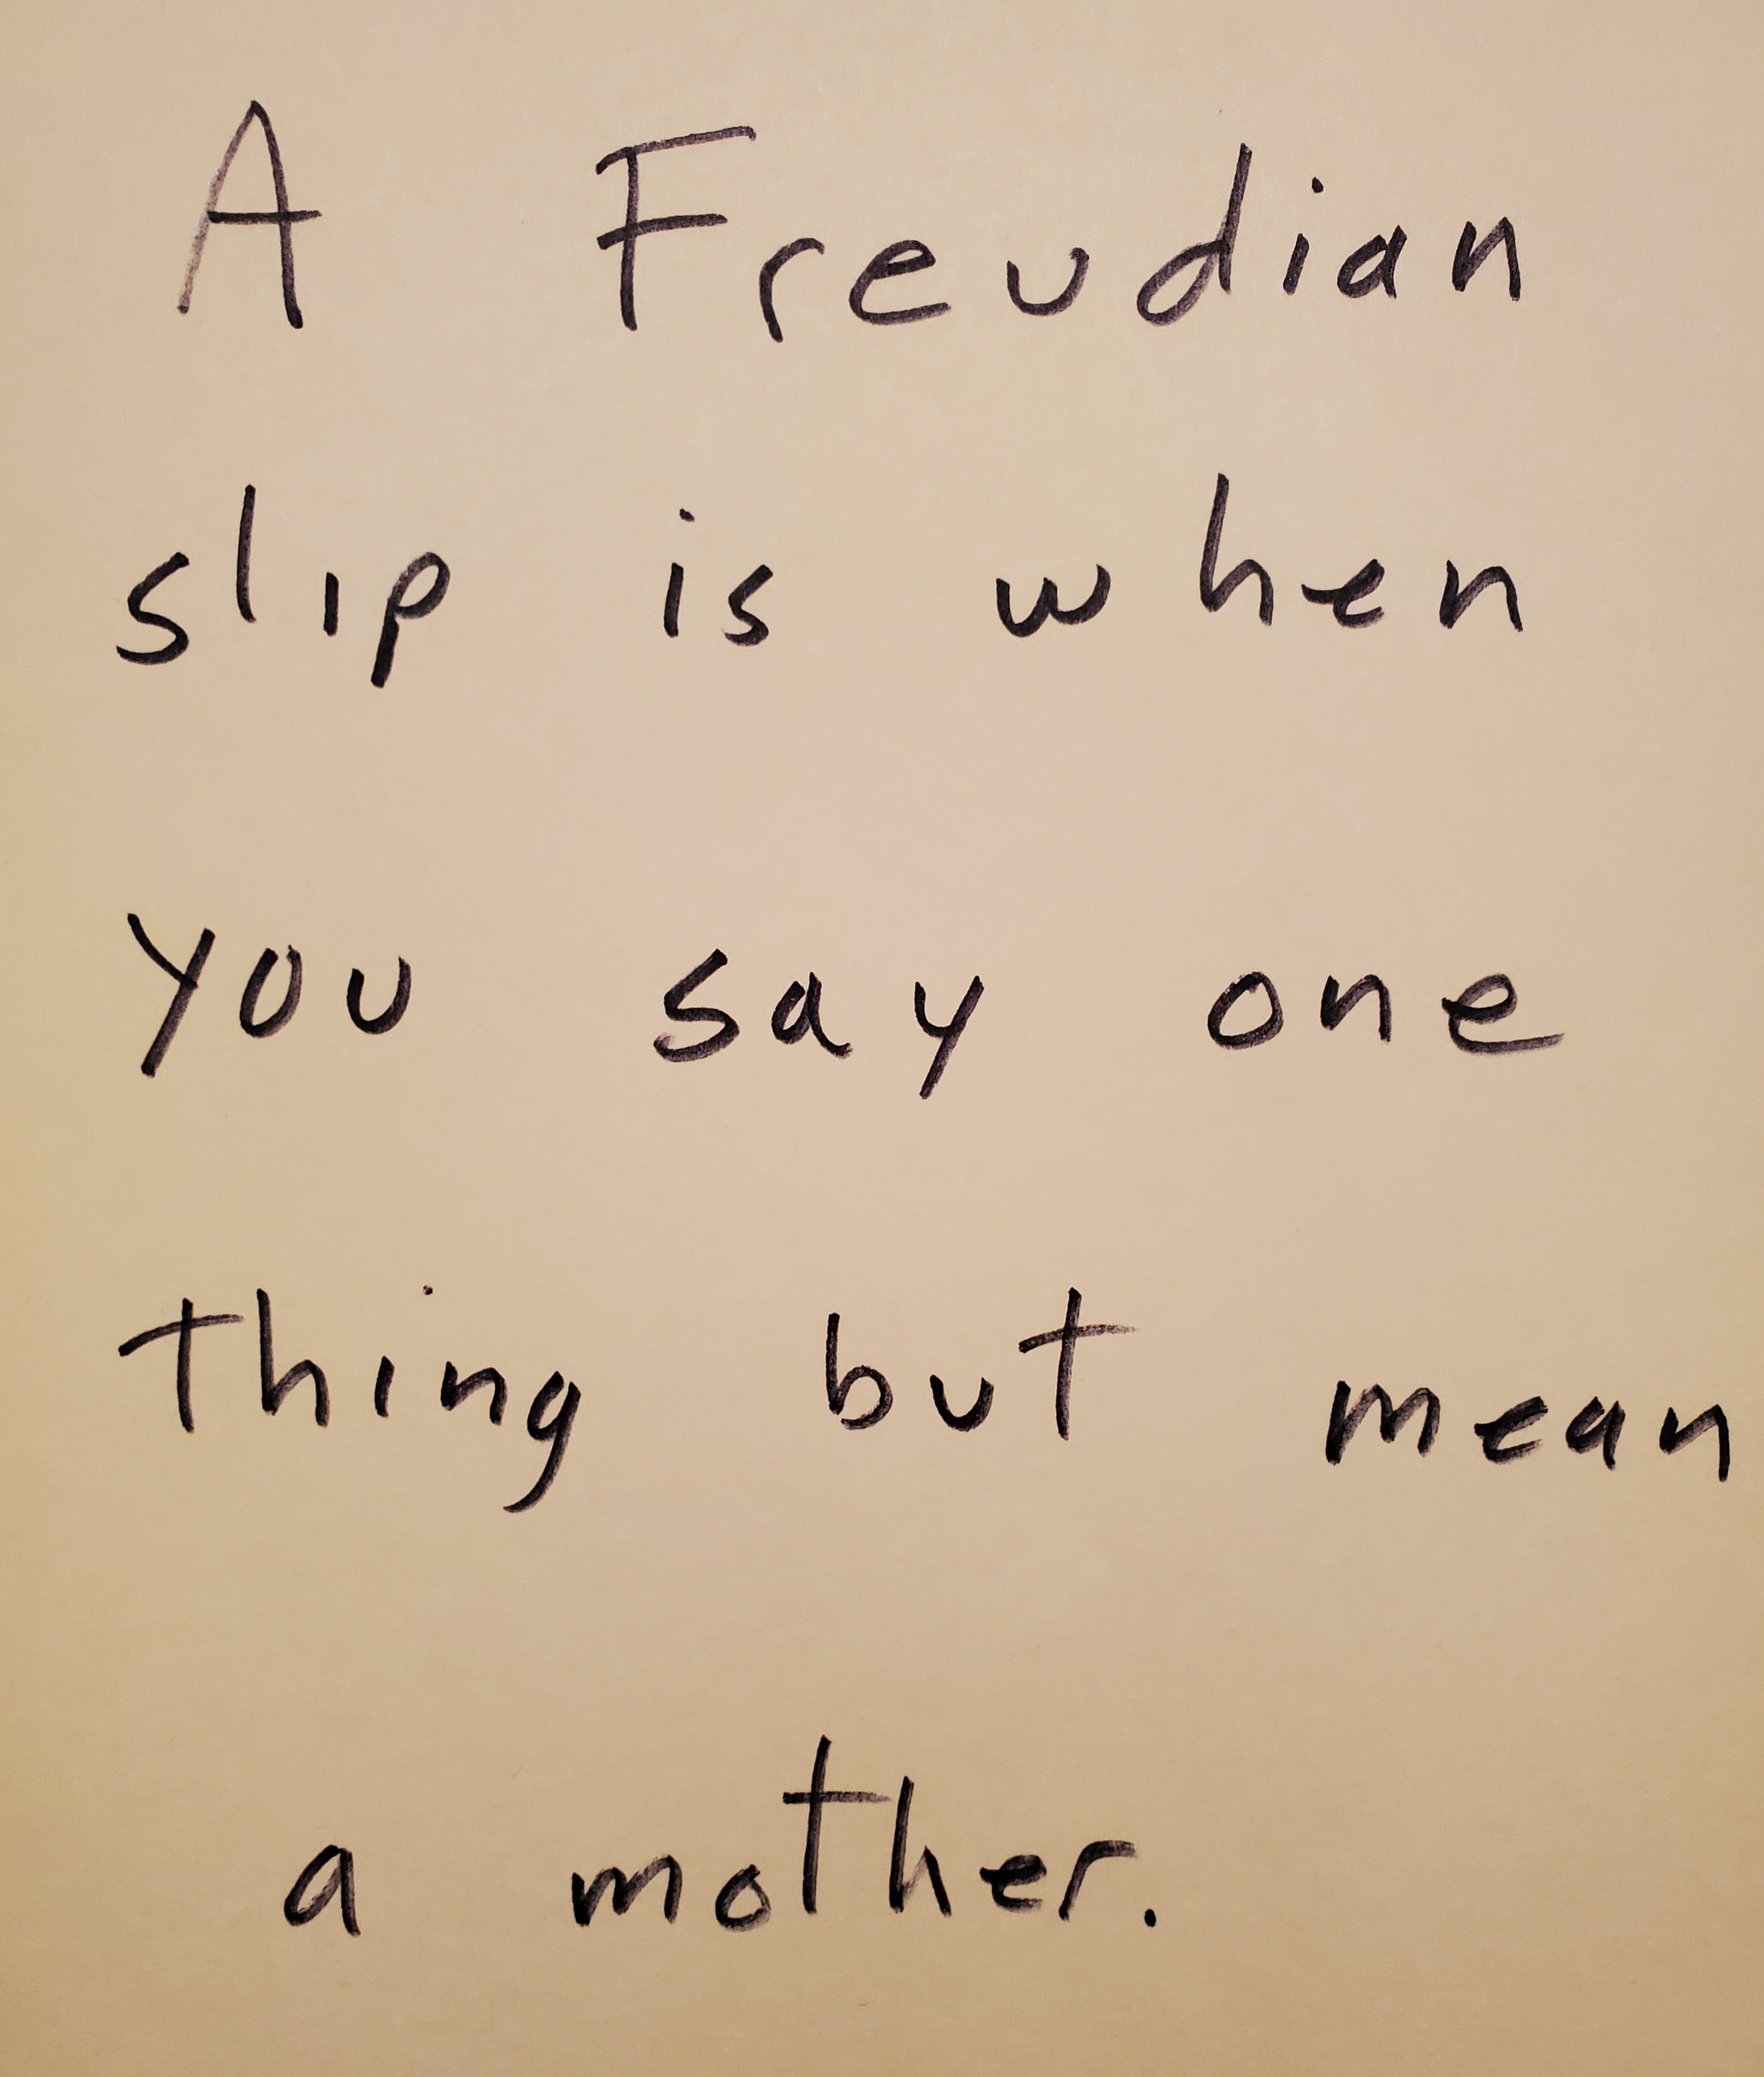 A Freudian
slip is when
you say one
thing but mean
a mother.